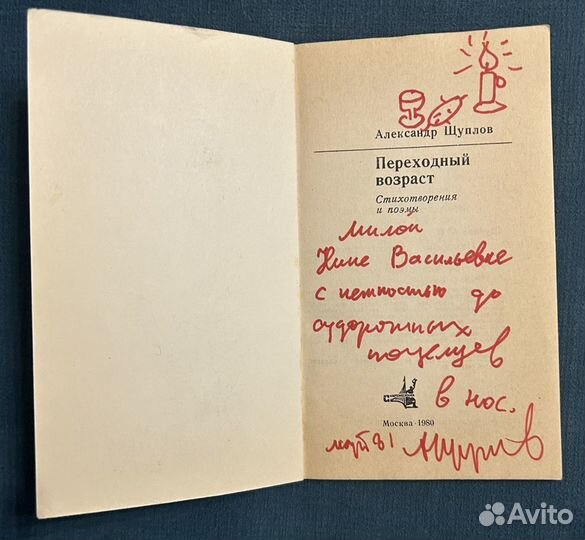 Александр Щуплов
Переходный
возраст
Стихотворения
и поэмы
Милой
Нине Васильевне
с нежностью до
судорожных
поцелуев
в нос.
Москва · 1980
март 81 АЩуплов
Avito